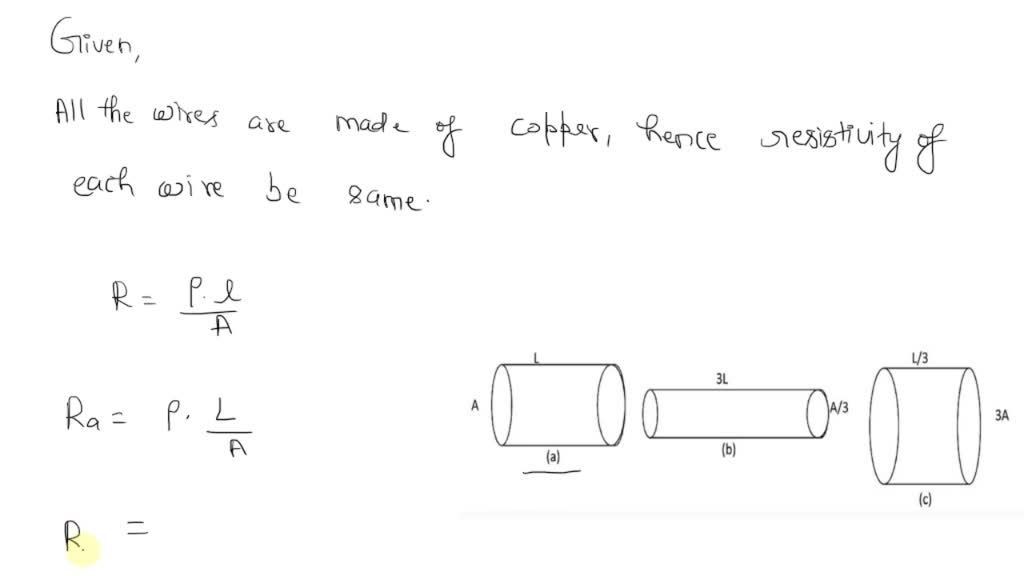 Given,
All the wires are made of copper, hence resistivity of
each wire be same.
R = ρ.l
A
Ra = ρ. L
A
R. =
L
A
(a)
3L
A/3
(b)
L/3
3A
(c)